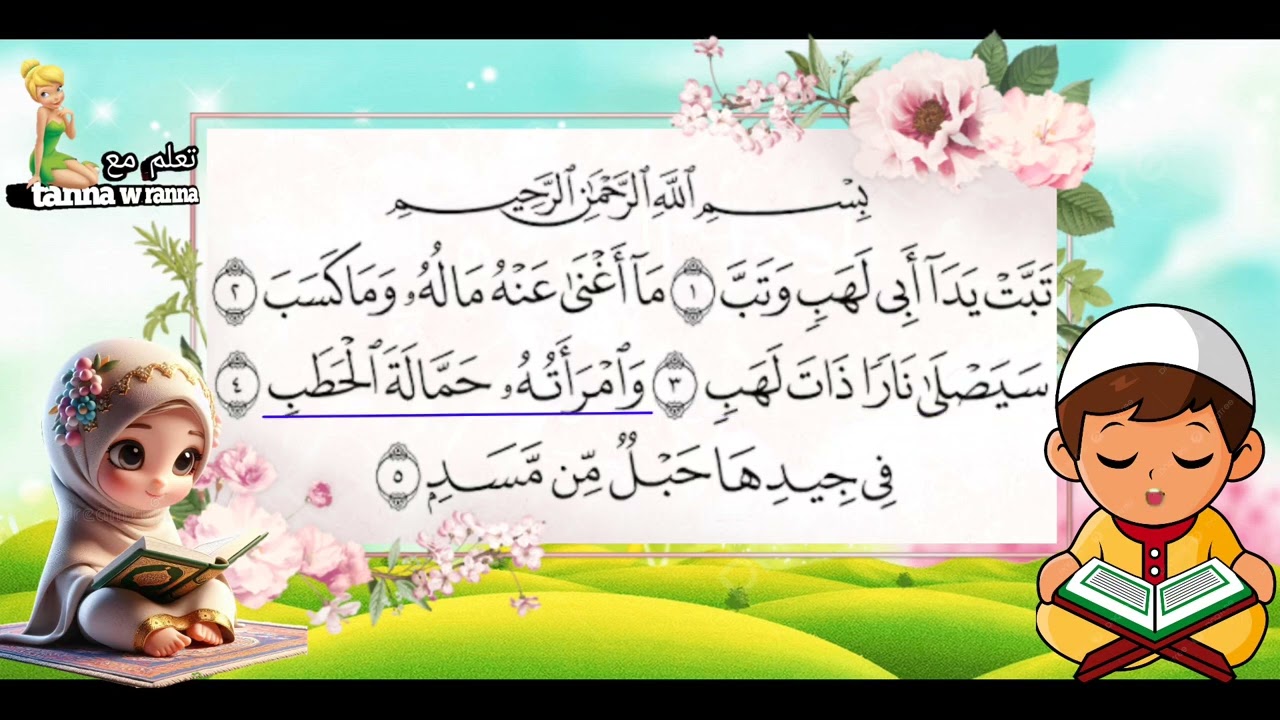 تعلم مع
tanna w ranna
بِسْمِ ٱللَّهِ ٱلرَّحْمَٰنِ ٱلرَّحِيمِ
تَبَّتْ يَدَآ أَبِى لَهَبٍ وَتَبَّ ١ مَآ أَغْنَىٰ عَنْهُ مَالُهُۥ وَمَا كَسَبَ ٢
سَيَصْلَىٰ نَارًا ذَاتَ لَهَبٍ ٣ وَٱمْرَأَتُهُۥ حَمَّالَةَ ٱلْحَطَبِ ٤
فِى جِيدِهَا حَبْلٌ مِّن مَّسَدٍ ٥